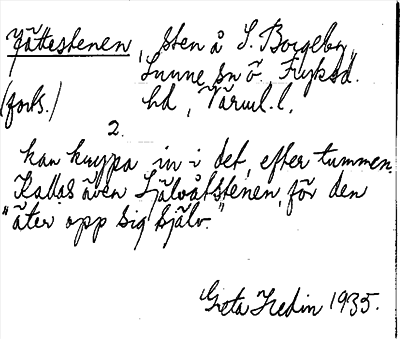 Jättestenen, sten å S. Borgeby,
Sunne sn ö. Fryksd.
(forts.) hd, Värml. l.
2.
kan krypa in i det, efter tummen.
Kallas även Självåtstenen, för den
"äter opp sig själv."
Greta Hedin 1935.